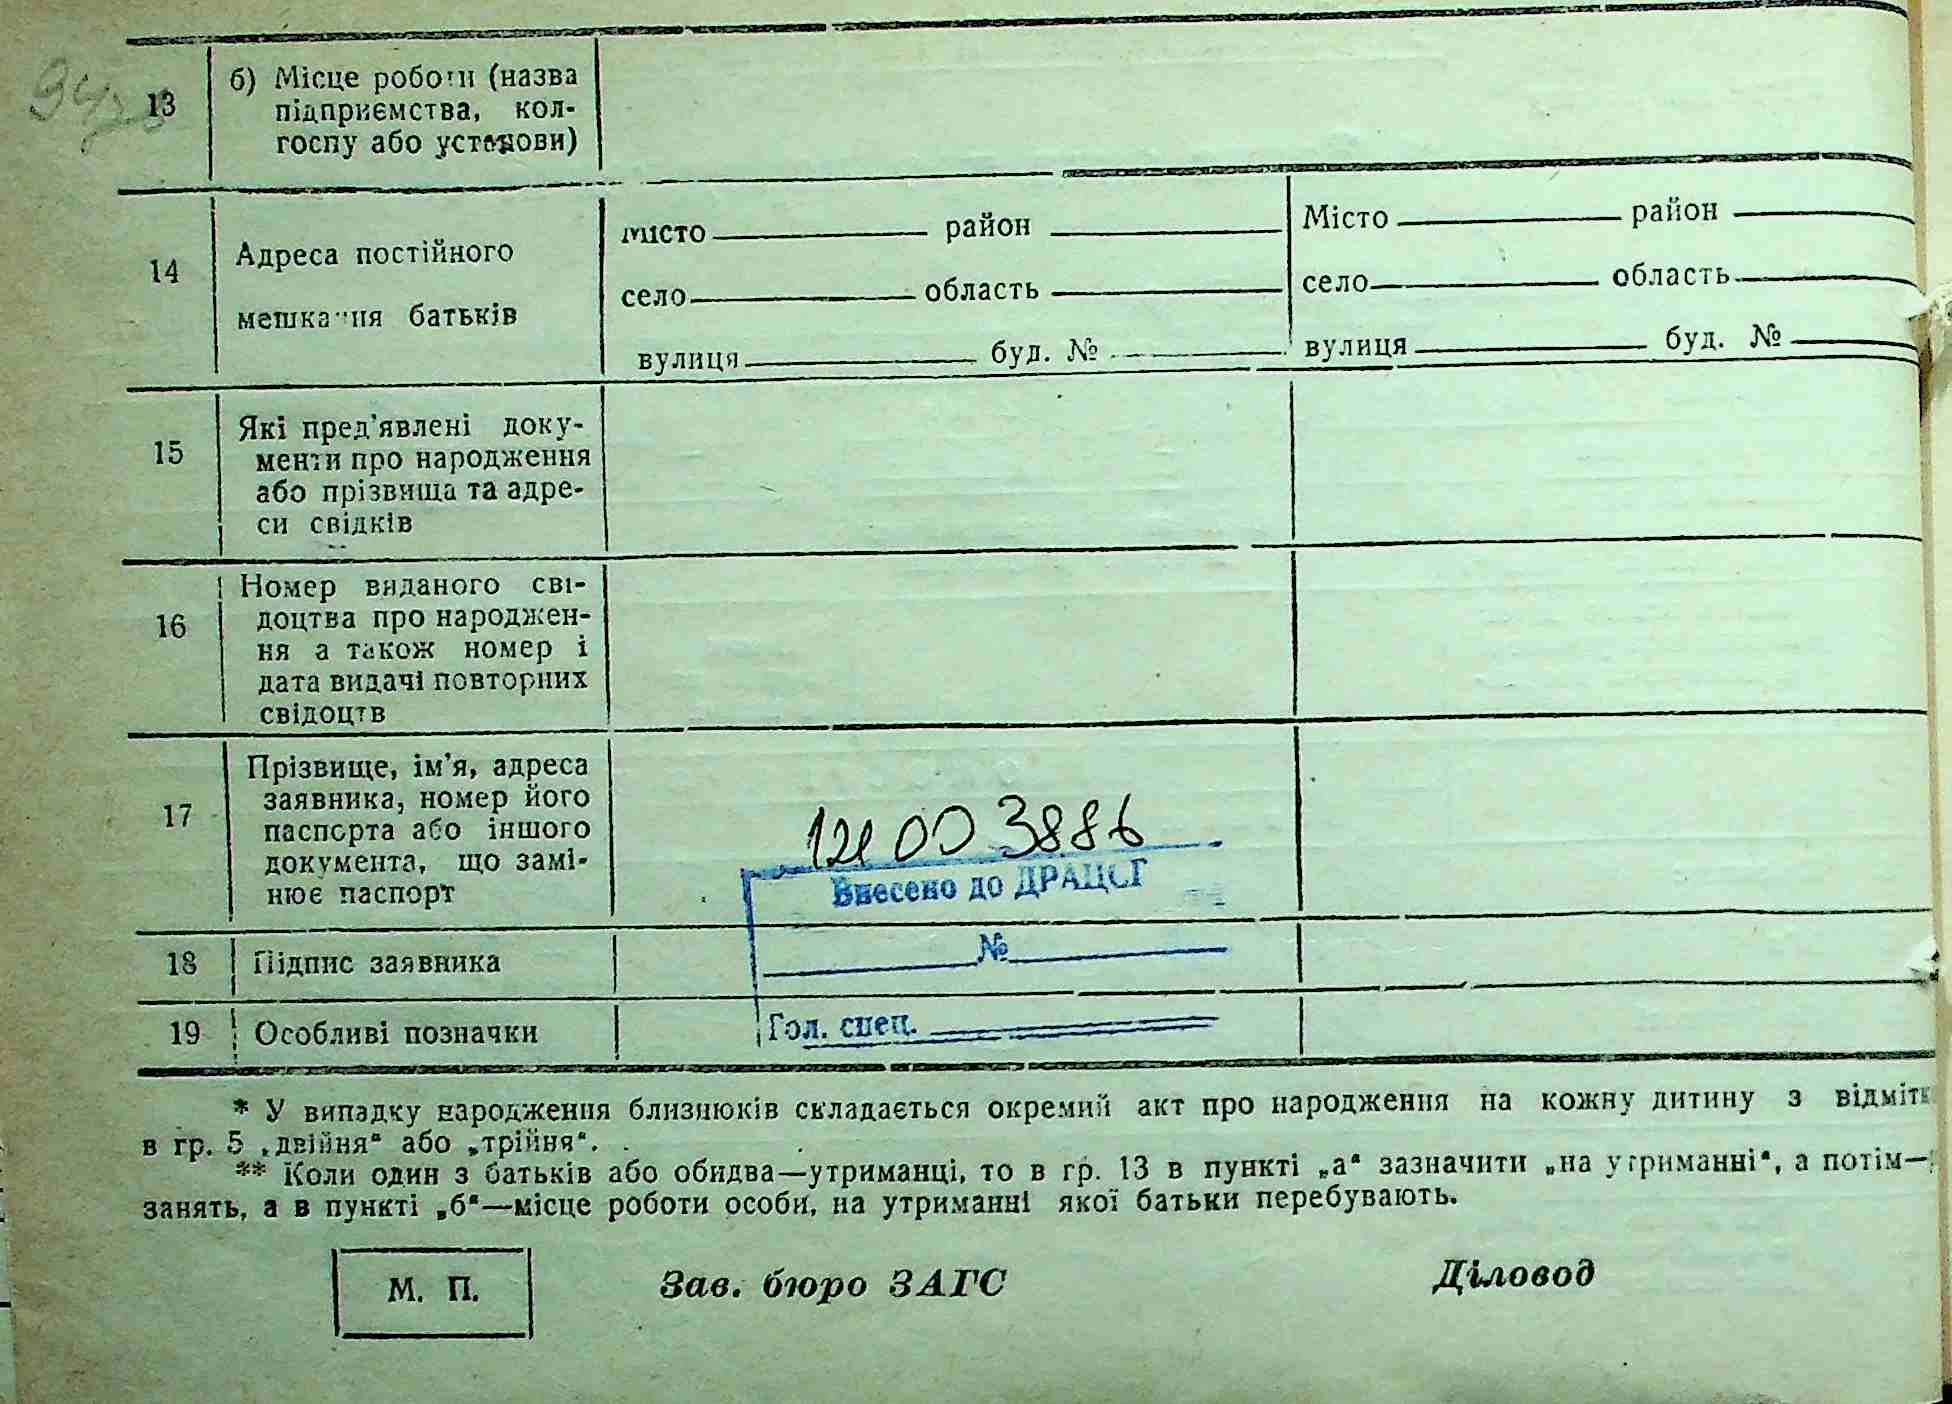 13
б) Місце роботи (назва
підприємства, кол-
госпу або установи)
14
Адреса постійного
мешкання батьків
місто район
село область
вулиця буд. №
Місто район
село область
вулиця буд. №
15
Які пред'явлені доку-
менти про народження
або прізвища та адре-
си свідків
16
Номер виданого сві-
доцтва про народжен-
ня а також номер і
дата видачі повторних
свідоцтв
17
Прізвище, ім'я, адреса
заявника, номер його
паспорта або іншого
документа, що замі-
нює паспорт
Внесено до ДРАЦСГ
№
Гол. спец.
18 Підпис заявника
19 Особливі позначки
* У випадку народження близнюків складається окремий акт про народження на кожну дитину з відмітк
в гр. 5 „двійня“ або „трійня“.
** Коли один з батьків або обидва—утриманці, то в гр. 13 в пункті „а“ зазначити „на утриманні“, а потім—
занять, а в пункті „б“—місце роботи особи, на утриманні якої батьки перебувають.
М. П.
Зав. бюро ЗАГС
Діловод